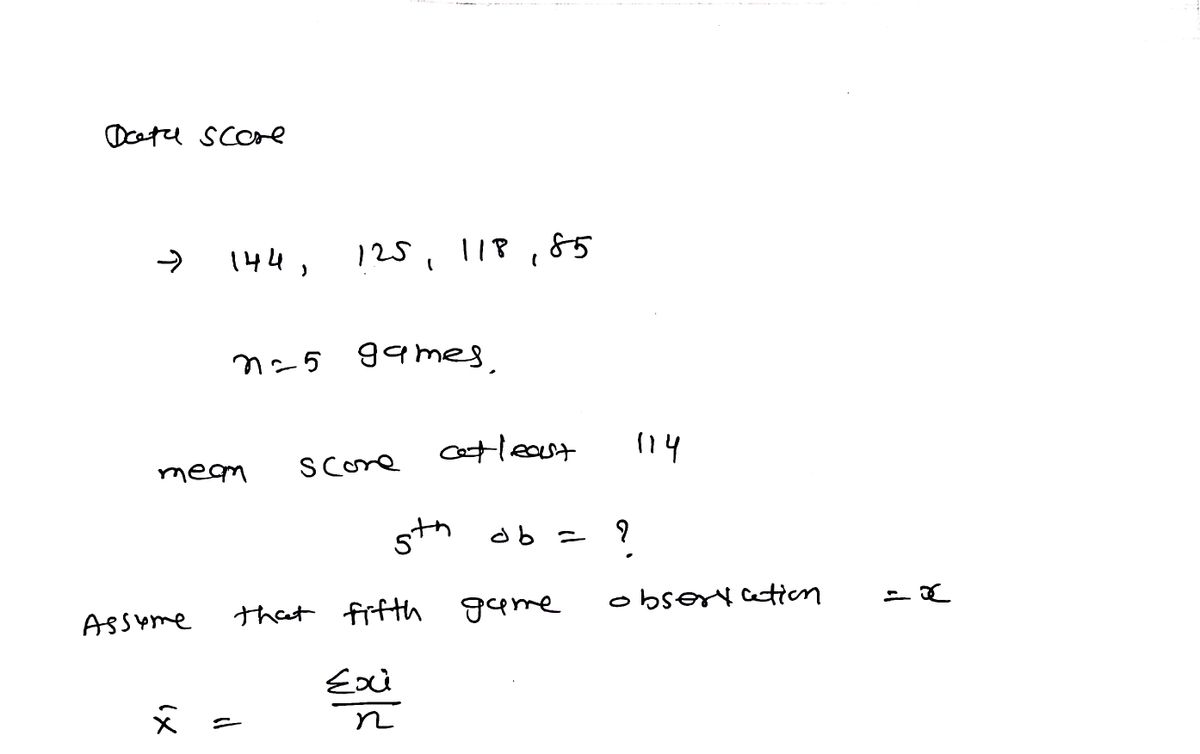 Data score
→ 144, 125, 118, 85
n=5 games.
mean score atleast 114
5th ob = ?
Assume that fifth game observation = x
x̄ = Σxi / n